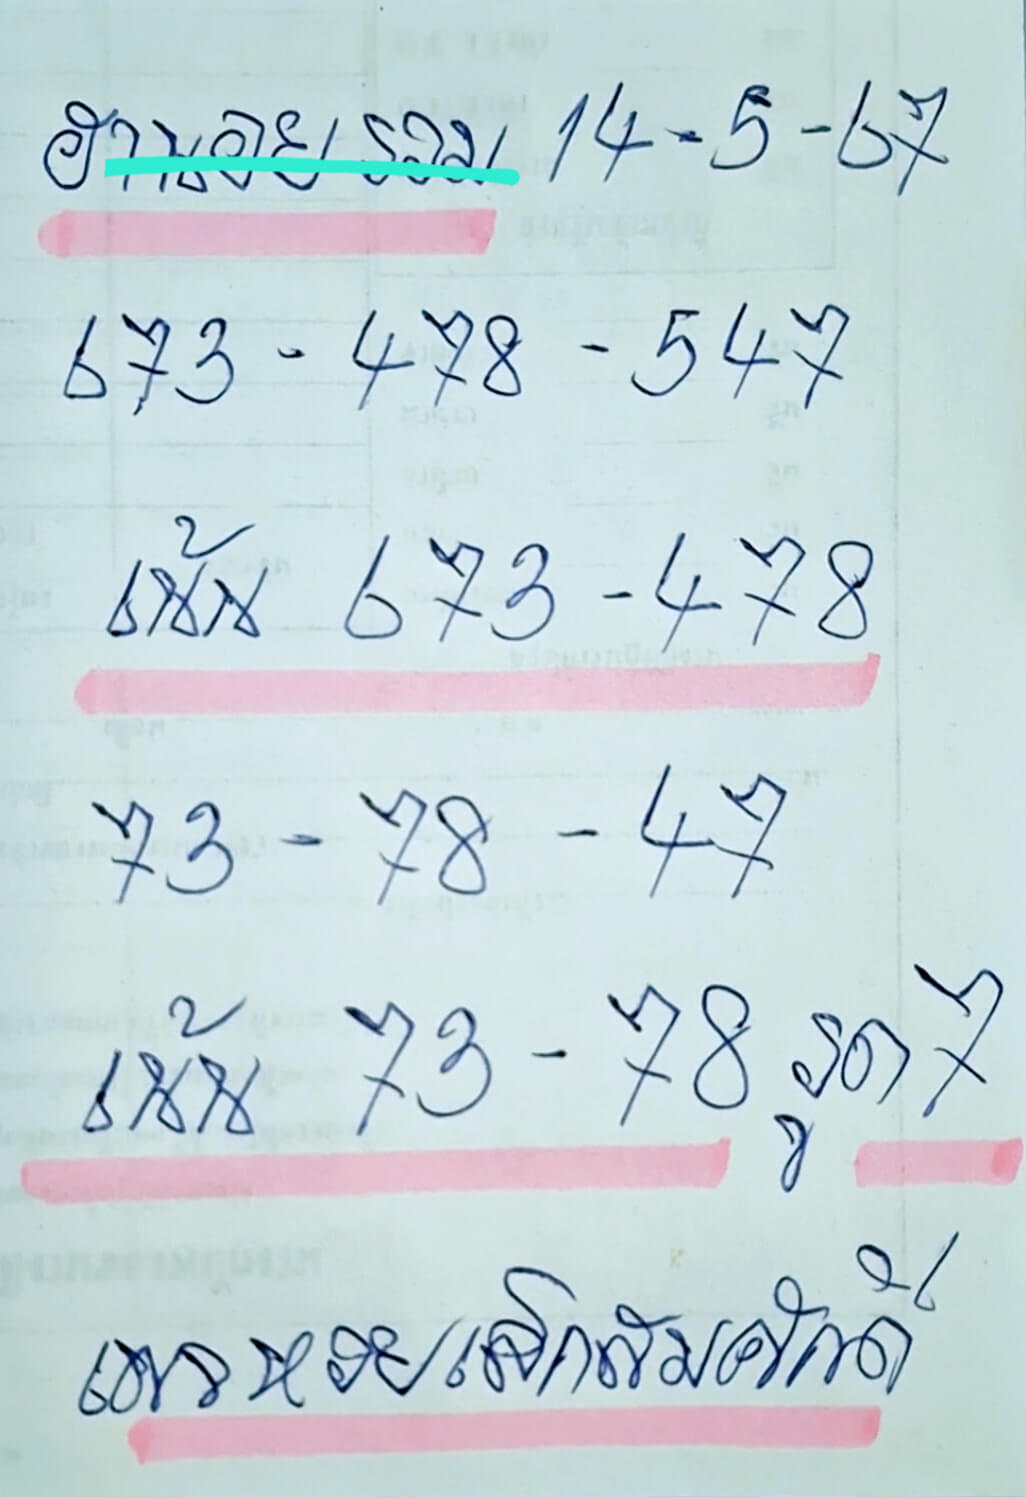 ฮานอย รวม 14-5-67
673 - 478 - 547
เน้น 673 - 478
73 - 78 - 47
เน้น 73 - 78 รูด 7
หวย